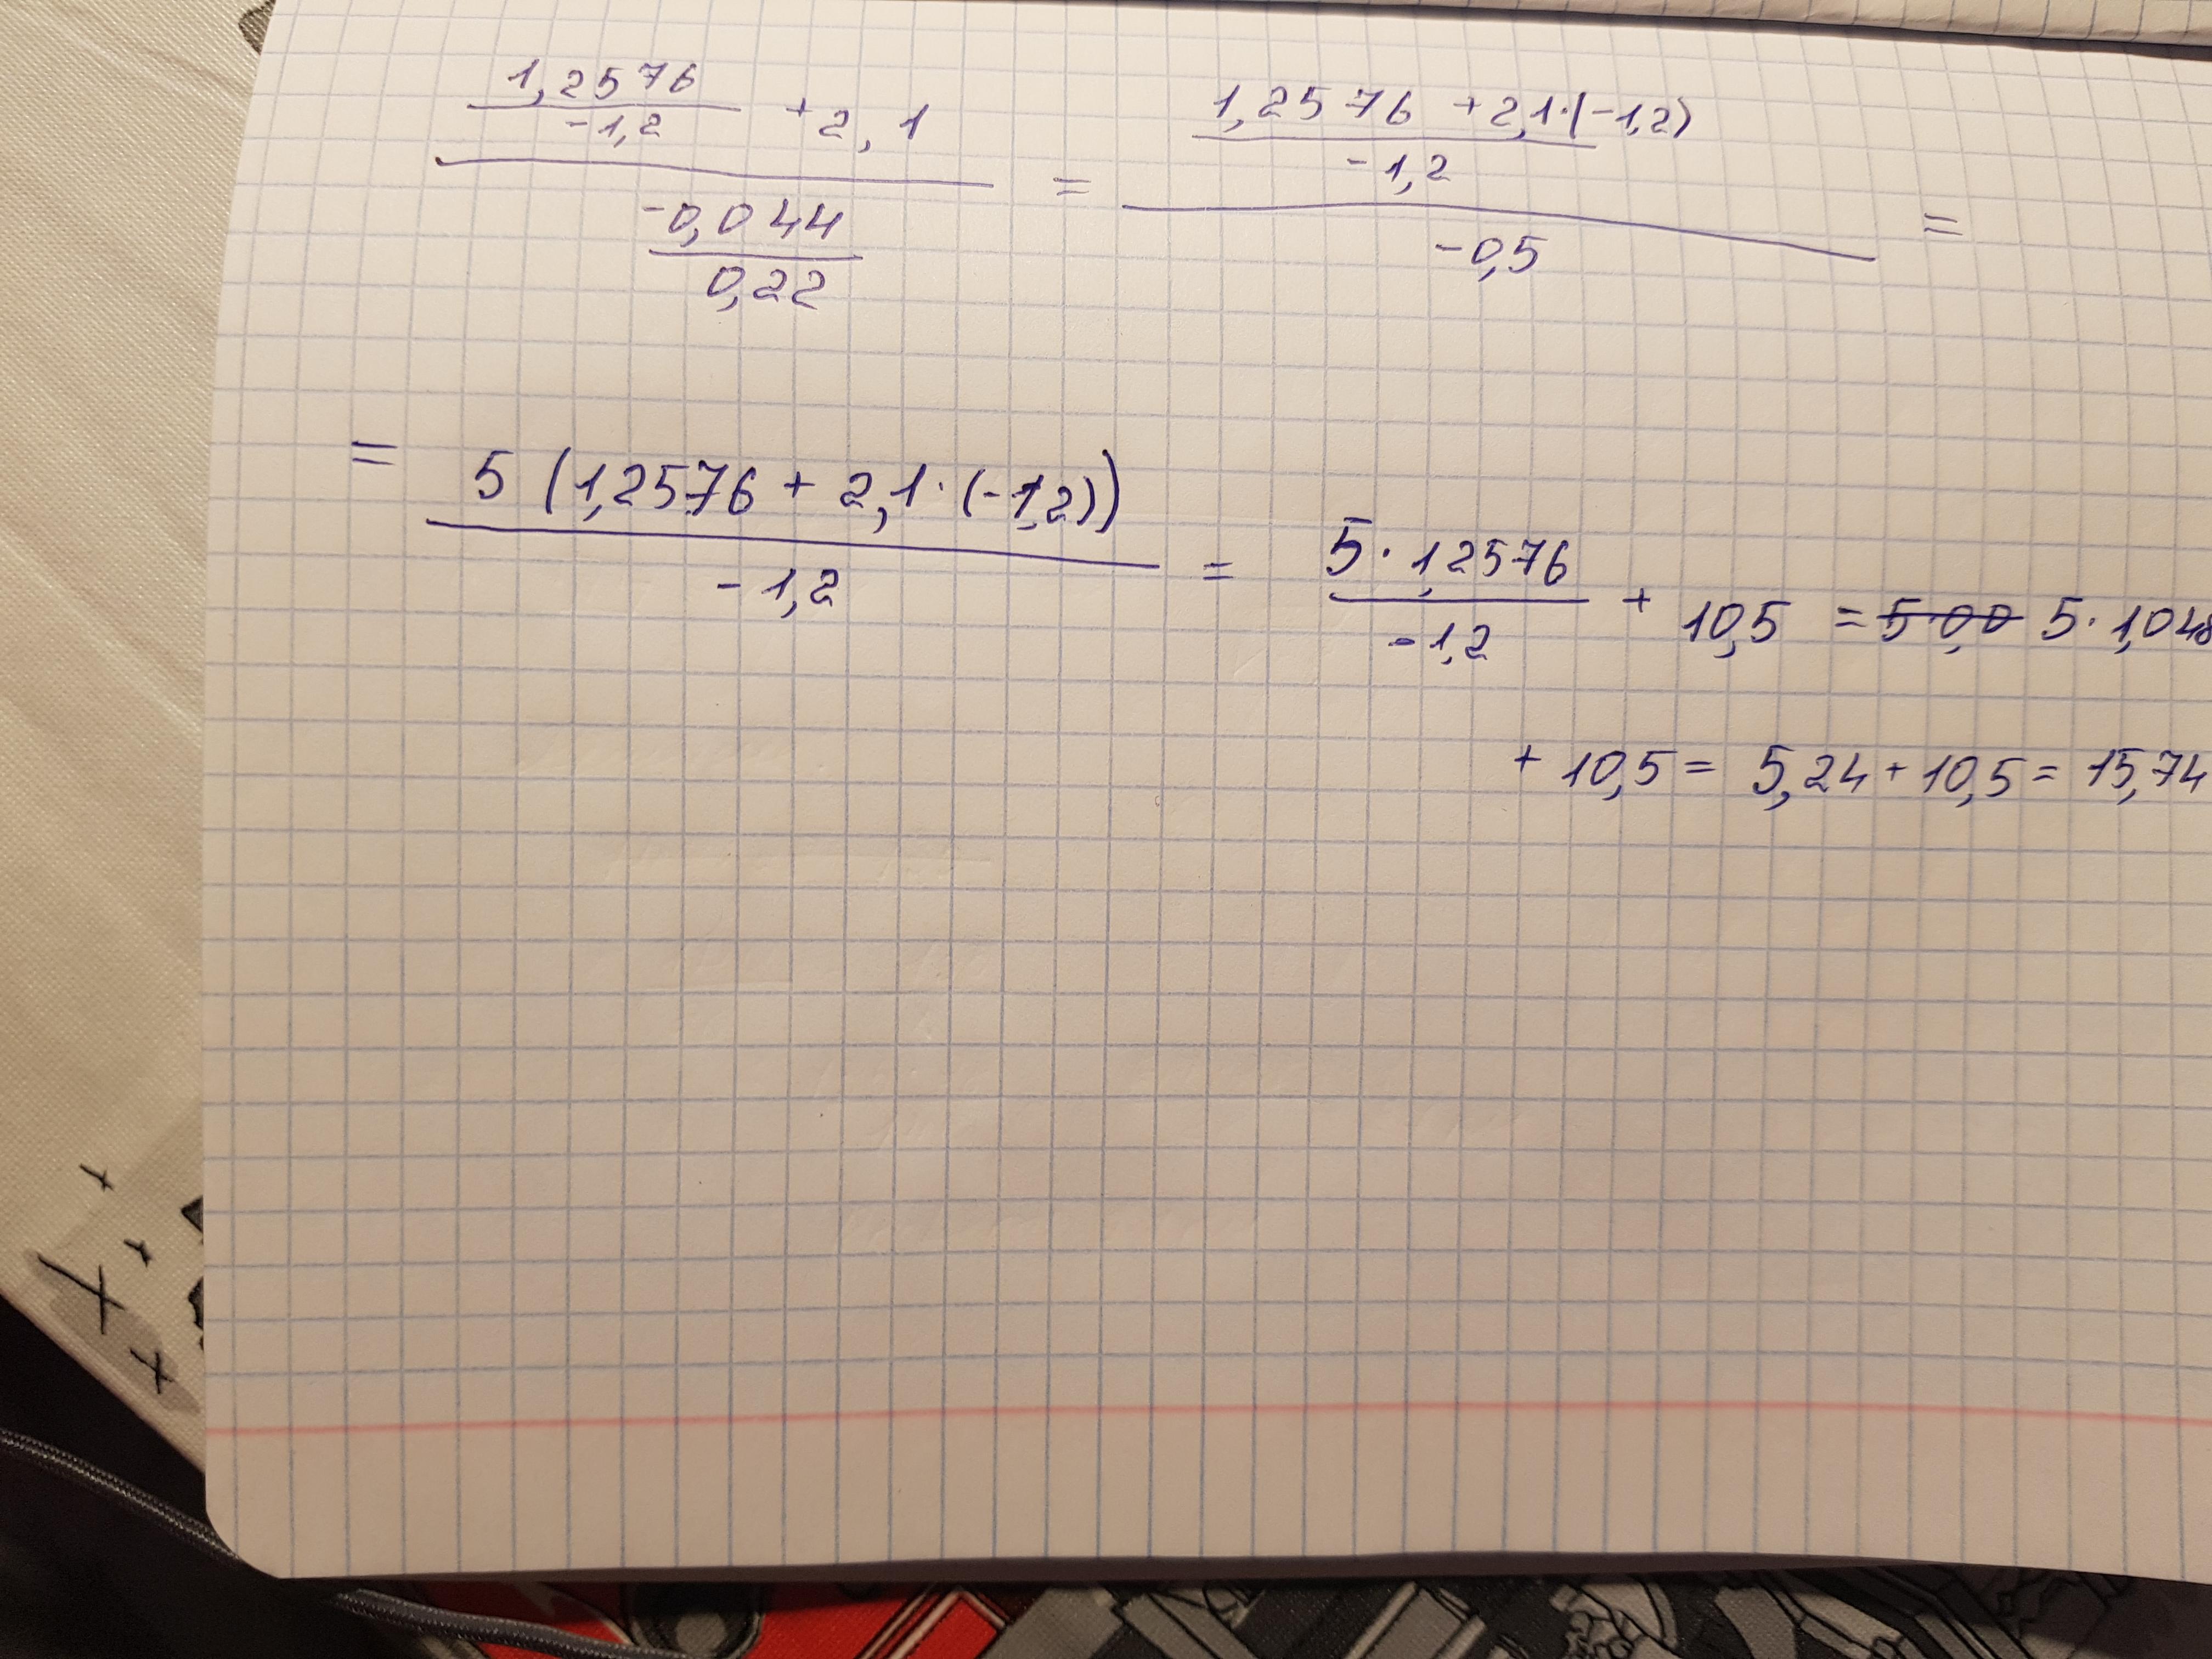 1,2576/-1,2 + 2,1 / -0,044/0,22 = 1,2576 + 2,1·(-1,2)/-1,2 / -0,5 =
= 5 (1,2576 + 2,1·(-1,2)) / -1,2 = 5·1,2576/-1,2 + 10,5 = 5·0,0 5·1,048
+ 10,5 = 5,24 + 10,5 = 15,74